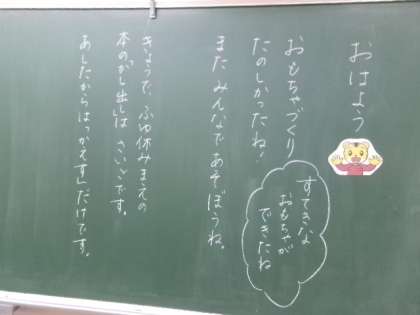 おはよう
おもちゃづくり
たのしかったね!
すてきな
おもちゃが
できたね
また みんなで あそぼうね。
きょうで、ふゆ休みまえの
本のかし出しは さいごです。
あしたからは「かえす」だけです。